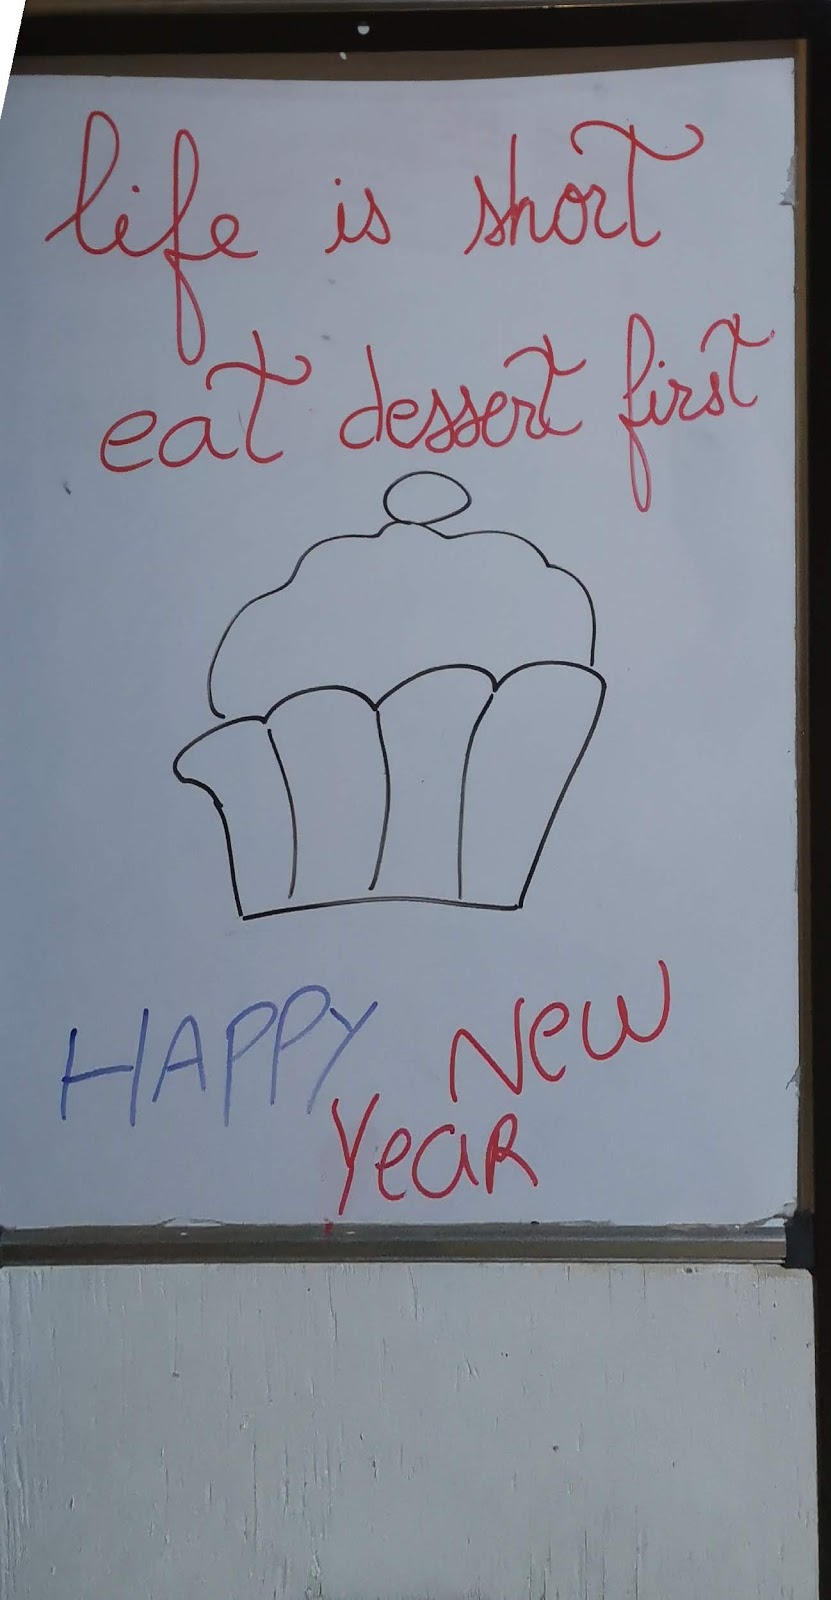 life is short
eat dessert first
HAPPY New
YeaR